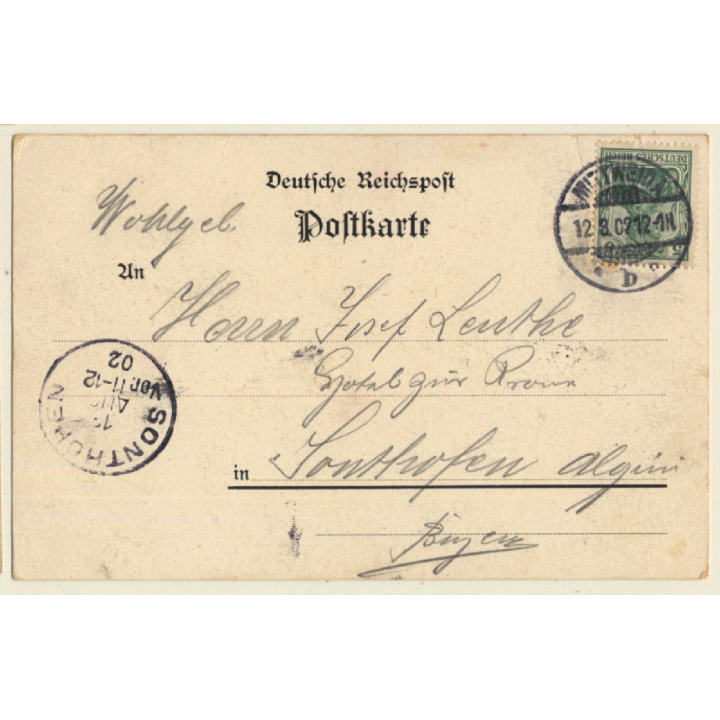 Deutsche Reichspost
Postkarte
Wohlgeb.
An
Herrn Josef Leuthe
Hotel zur Krone
in Sonthofen Algäu
Bayern
MITTWEIDA
12.8.02 12-1N
b
DEUTSCHES REICH
5
SONTHOFEN
AUG
VOR.11-12
02